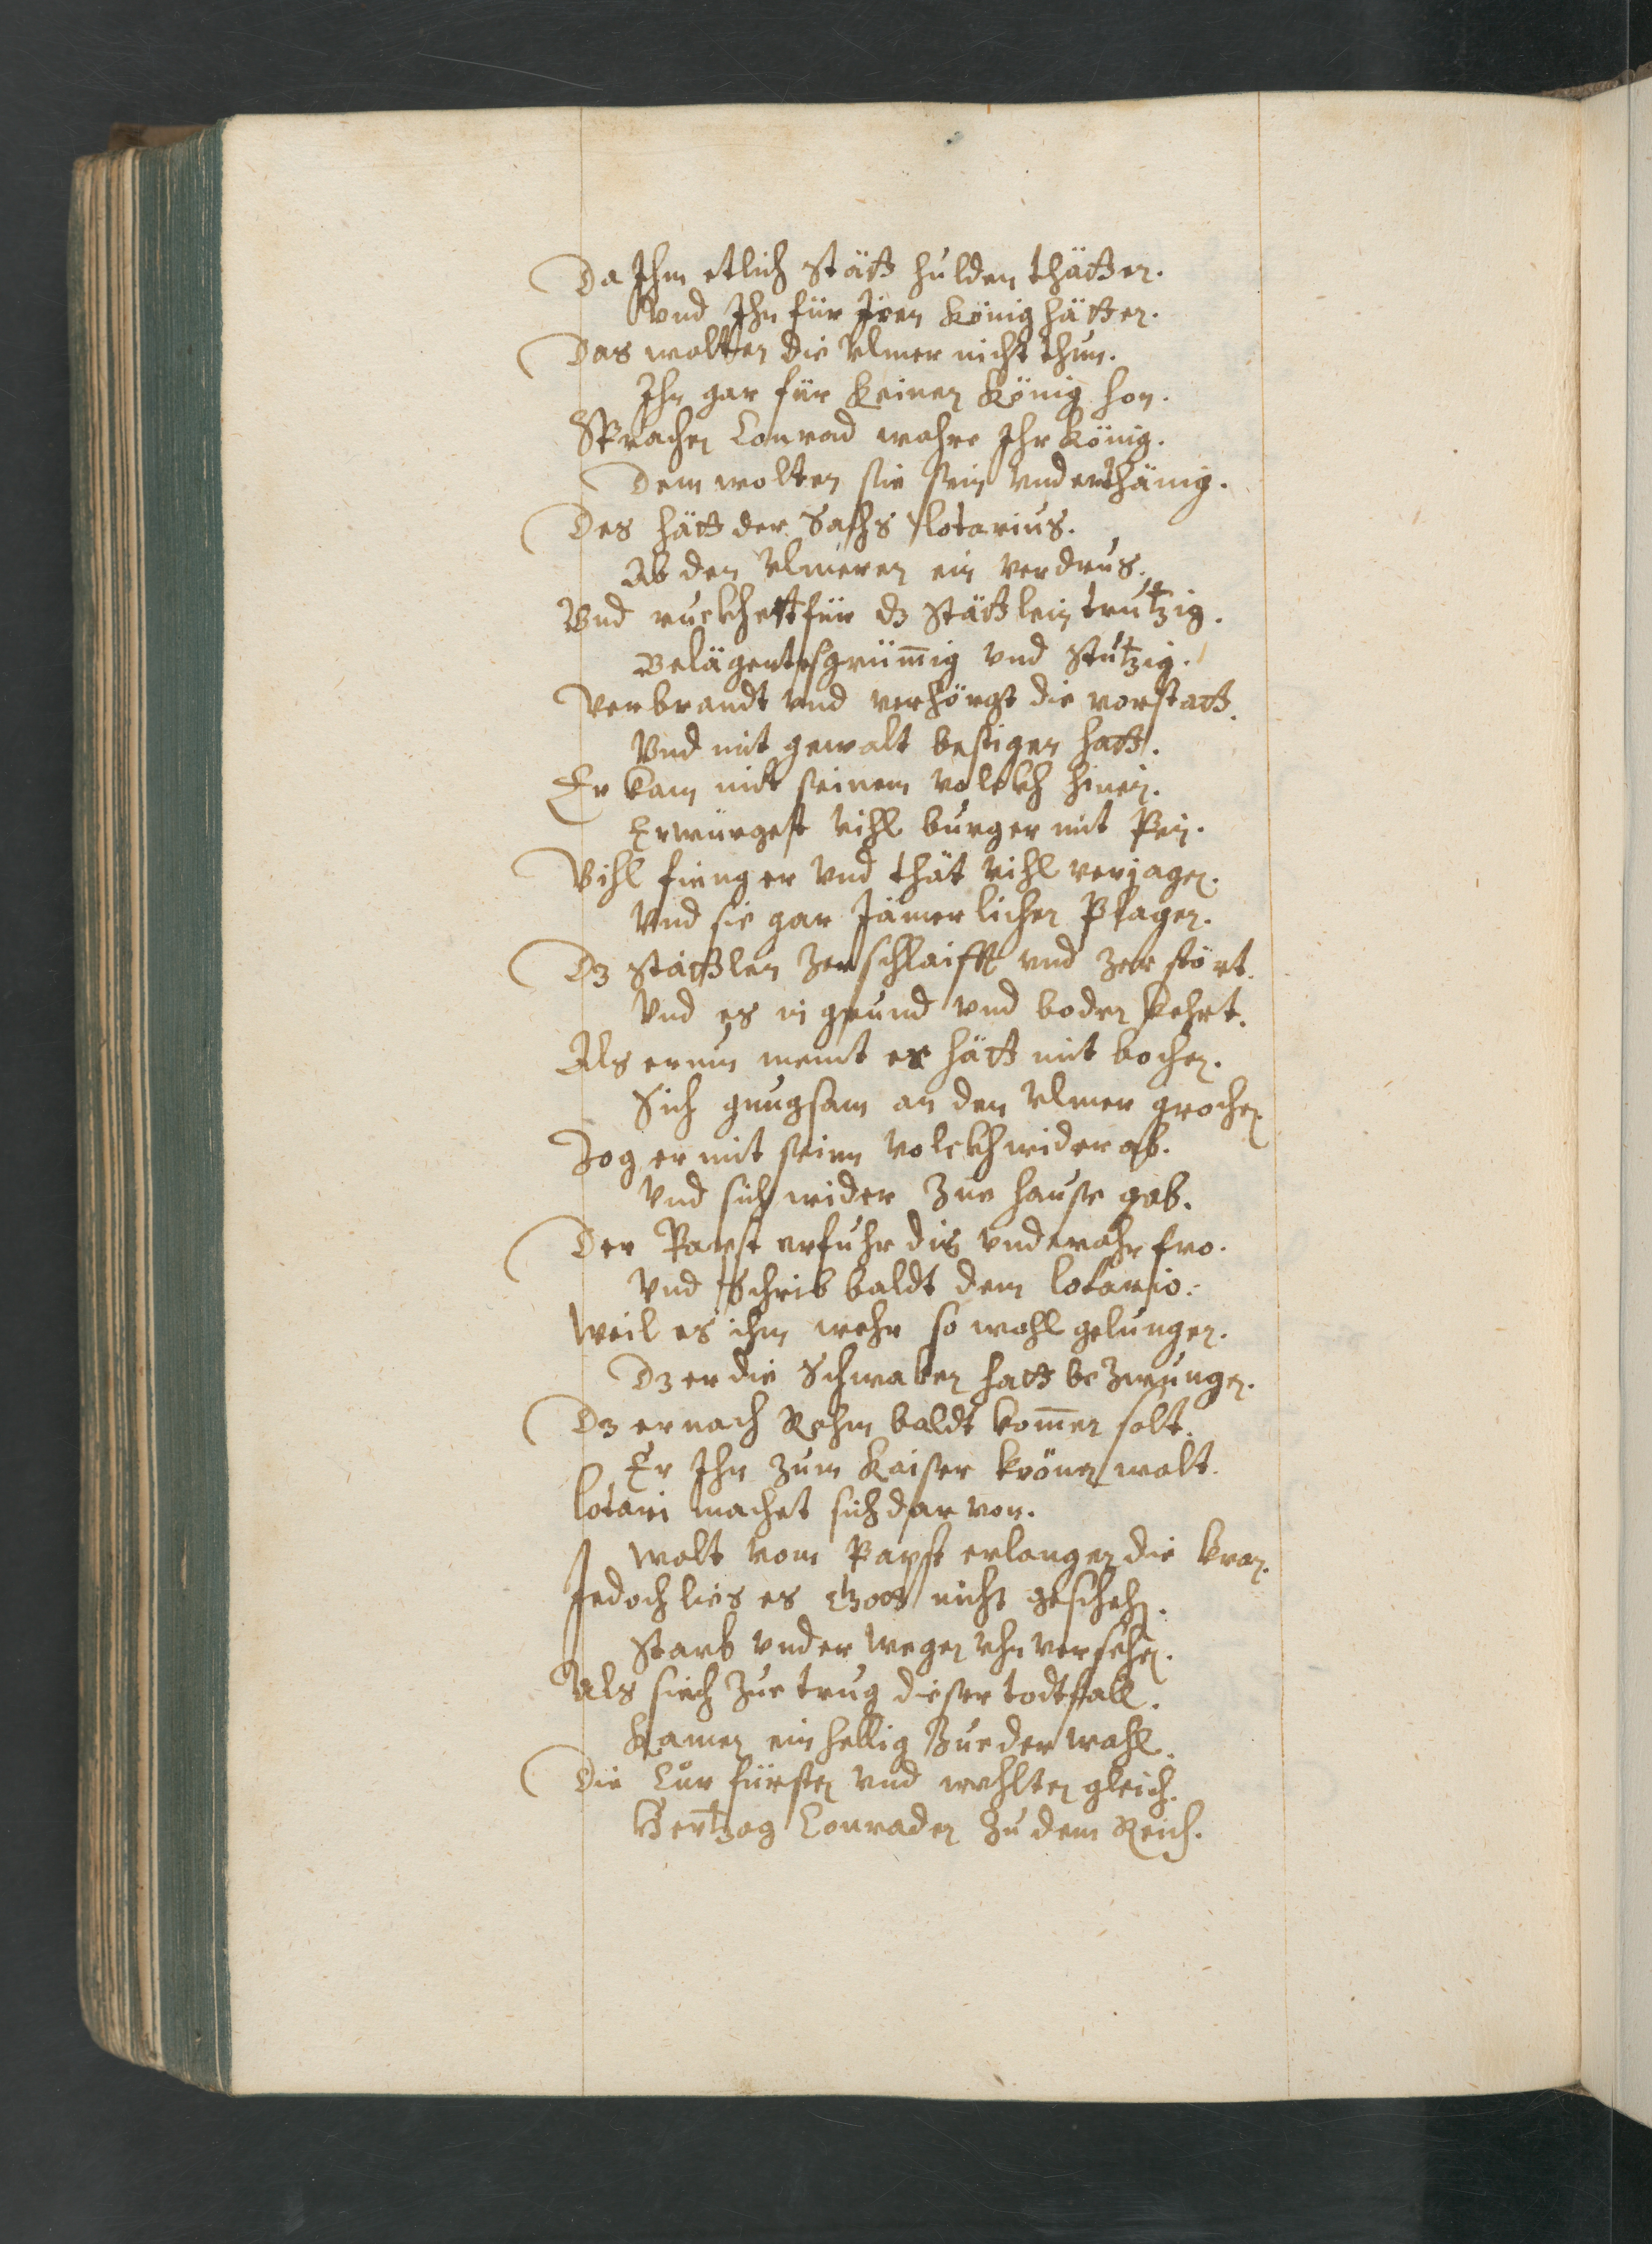 Da Ihm etlich Stätt hulden thätten.
Vnd Ihn für Iren König hätten.
Das wolten die Vlmer nicht thun.
Ihn gar für keinen König hon.
Sprachen Conrad wahre Ihr König.
Dem wolten sie sein vnderthänig.
Des hätt der Sachs lotarius.
Ab den Vlmeren ein verdrus.
Vnd ruckhett für dz Stättlein trutzig.
Belägerts grim̄ig vnd stutzig.
Verbrandt vnd verhörgt die vorstatt.
Vnd mit gewalt bestigen hatt.
Er kam mit seinem volckh hinein.
Erwürgest vihl burger mit Pein.
Vihl fieng er vnd thät vihl verjagen.
Vnd sie gar Jämerlichen Plagen.
Dz stättlen zerschlaifft vnd zerstört.
Vnd es in grund vnd boden kehrt.
Als er nun meint er hätt mit bochen.
Sich gnugsam an den Vlmer grochen
Zog er mit seim volckh wider ab.
Vnd sich wider Zue hause gab.
Der Papst erfuhr dis vnd wahr fro.
Vnd Schrib baldt dem lotario.
Weil es ihm wehr so wohl gelungen.
Dz er die Schwaben hatt bezwungen.
Dz er nach Rohm baldt kom̄en solt.
Er Ihn zum Kaiser krönen wolt.
lotari machet sich darvon.
Wolt vom Papst erlangen die kron.
Jedoch lies es Gott nicht geschehen.
Starb vnder wegen vhnversehen.
Als sich Zue trug dieser todtfall.
Kamen einhellig Zue der wahl.
Die Curfürsten vnd wehlten gleich.
Hertzog Conraden Zu dem Reich.